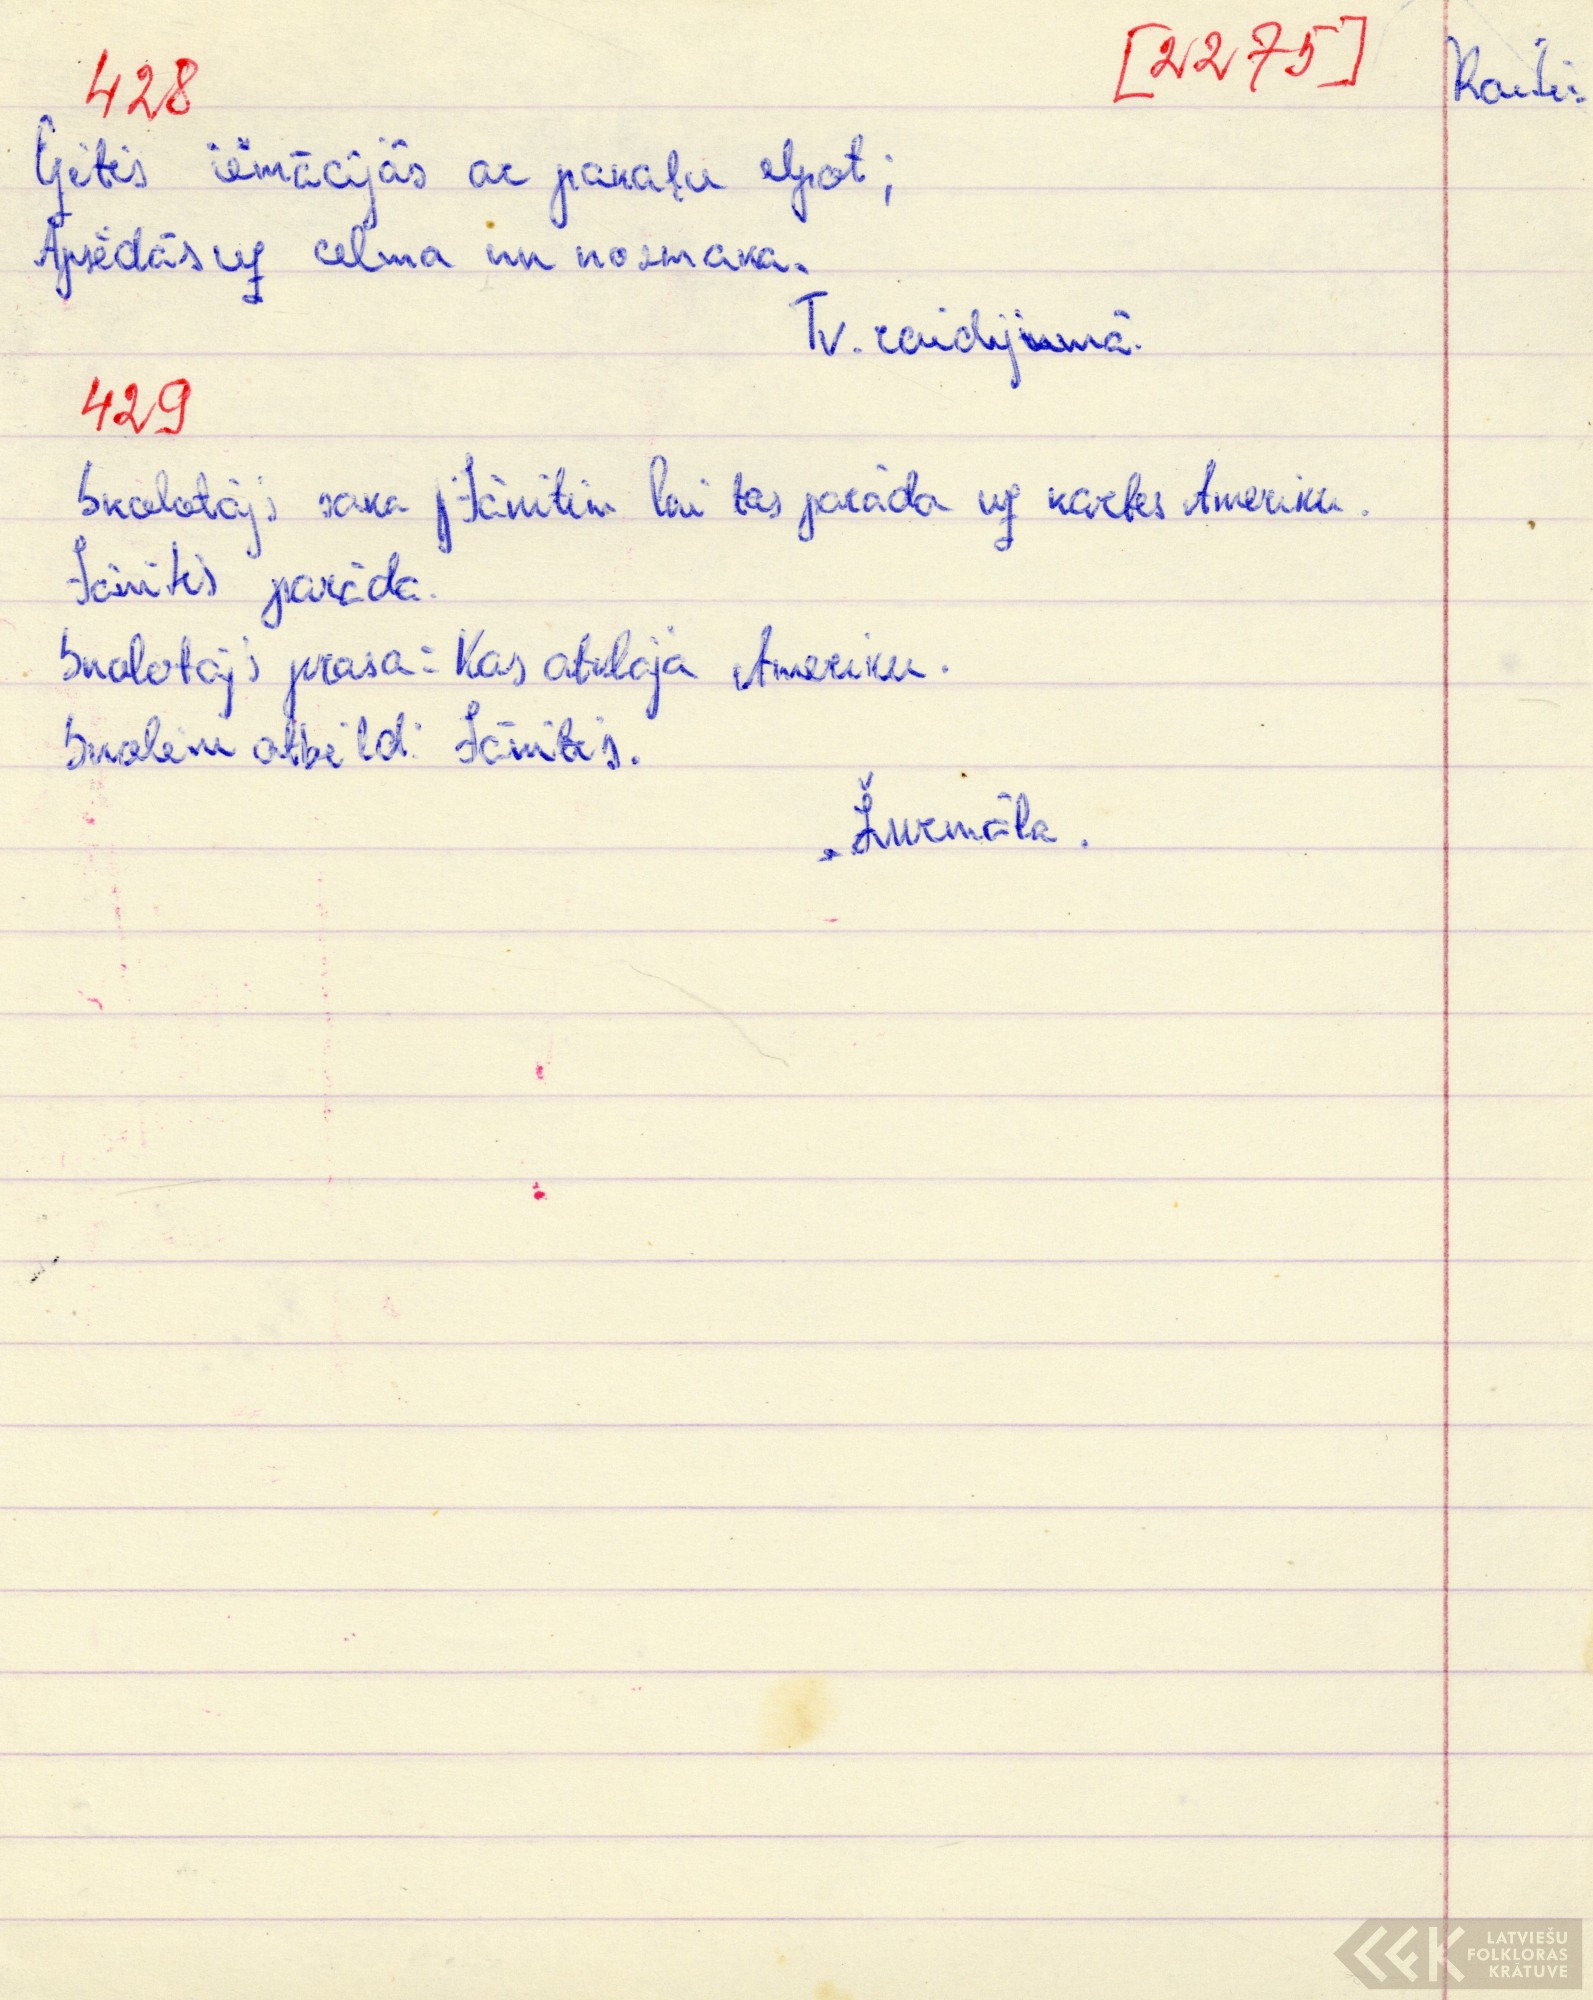 428
[2275]
Ģitis iemācījās ar pakaļu elpot;
Apsēdās uz celma un nosmaka.
Tv. raidījumā.
429
Skolotājs saka Jānītim lai tas parāda uz kartes Ameriku.
Jānītis parāda.
Skolotājs prasa: Kas atklāja Ameriku.
Skolēni atbild: Jānītis.
„Žurmāla.
LATVIEŠU
FOLKLORAS
KRĀTUVE